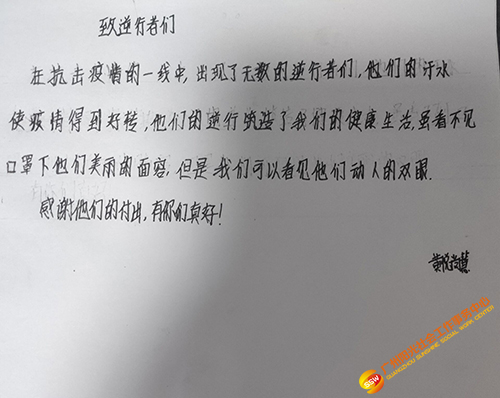 致逆行者们
在抗击疫情的一线中,出现了无数的逆行者们,他们的汗水
使疫情得到好转,他们的逆行筑造了我们的健康生活,虽看不见
口罩下他们美丽的面容,但是我们可以看见他们动人的双眼.
感谢他们的付出,有你们真好!
GUANGZHOU SUNSHINE SOCIAL WORK CENTER